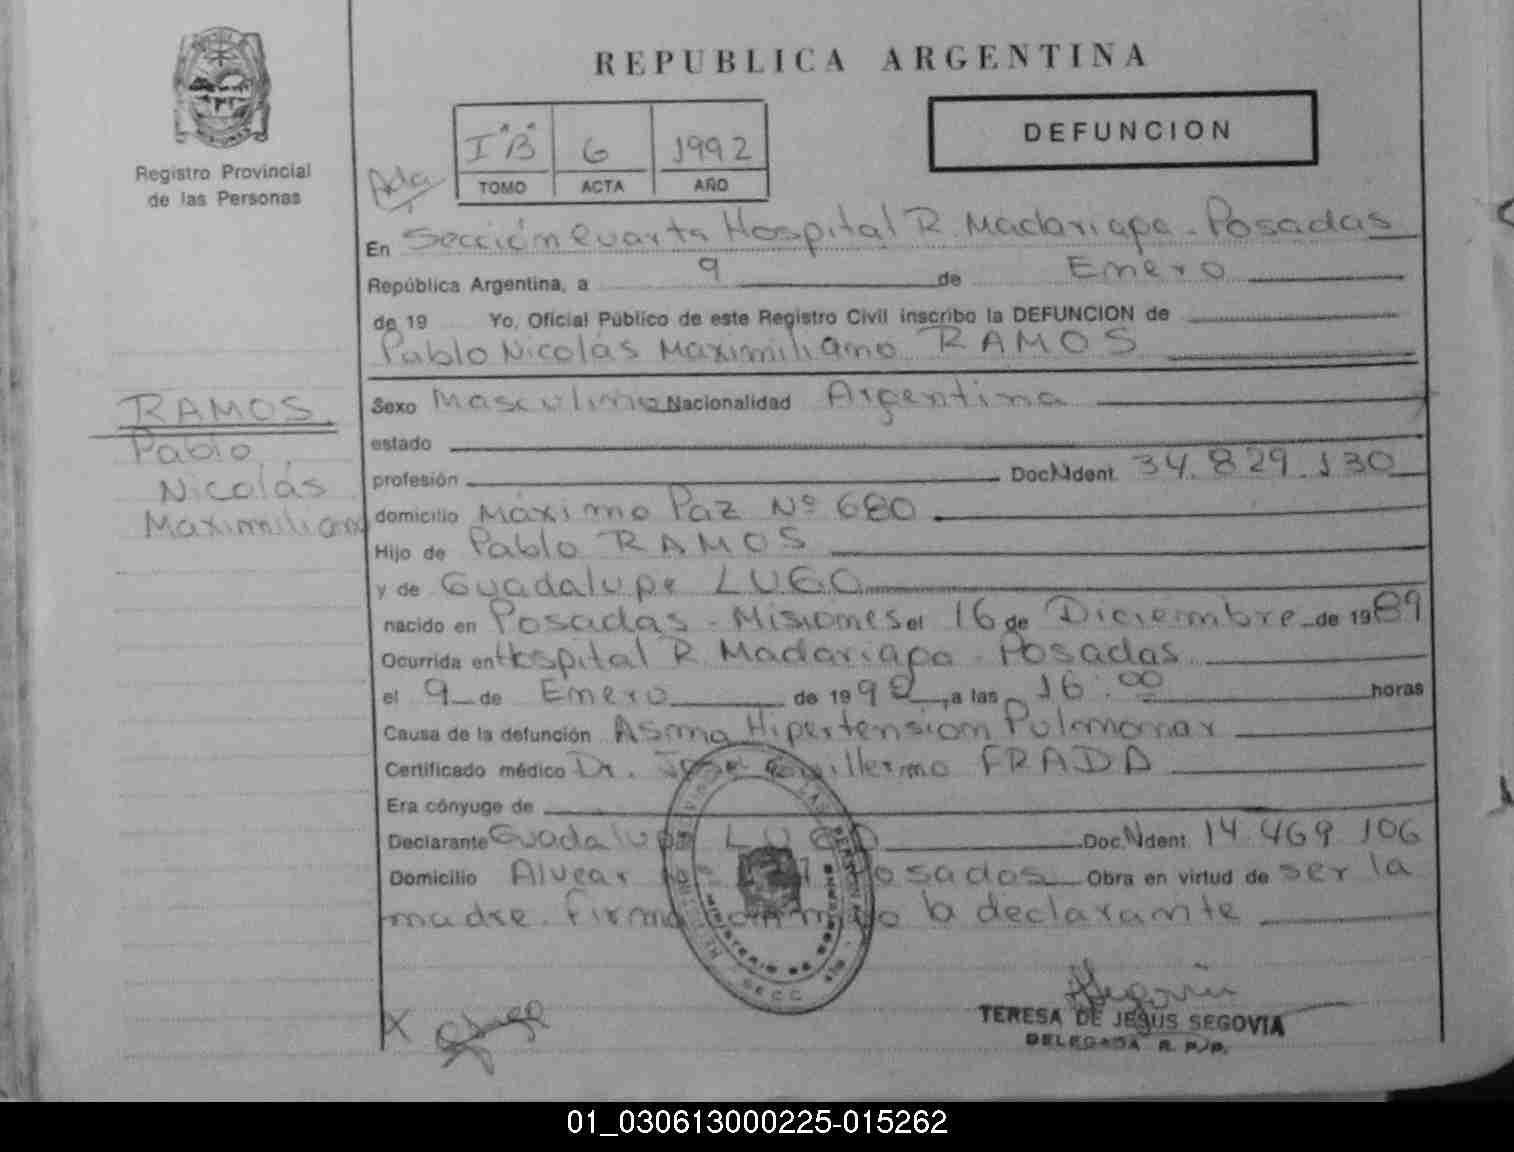 REPUBLICA ARGENTINA
DEFUNCION
Registro Provincial
de las Personas
I "B" 6 1992
TOMO ACTA AÑO
En Sección Cuarta Hospital R. Madariaga - Posadas
República Argentina, a 9 de Enero
de 19 Yo, Oficial Público de este Registro Civil inscribo la DEFUNCION de
Pablo Nicolás Maximiliano RAMOS
RAMOS
Pablo
Nicolás
Maximiliano
Sexo Masculino Nacionalidad Argentina
estado
profesión Doc. Ndent. 34.829.130
domicilio Máximo Paz Nº 680
Hijo de Pablo RAMOS
y de Guadalupe LUGO
nacido en Posadas - Misiones el 16 de Diciembre de 1989
Ocurrida en Hospital R. Madariaga - Posadas
el 9 de Enero de 1992, a las 16:00 horas
Causa de la defunción Asma Hipertension Pulmonar
Certificado médico Dr. José Guillermo FRADA
Era cónyuge de
Declarante Guadalupe LUGO Doc. Ndent. 14.469.106
Domicilio Alvear Posadas Obra en virtud de ser la
madre. Firma la declarante
MINISTERIO DE GOBIERNO
SECC
X
TERESA DE JESUS SEGOVIA
DELEGADA R. P/P.
01_030613000225-015262